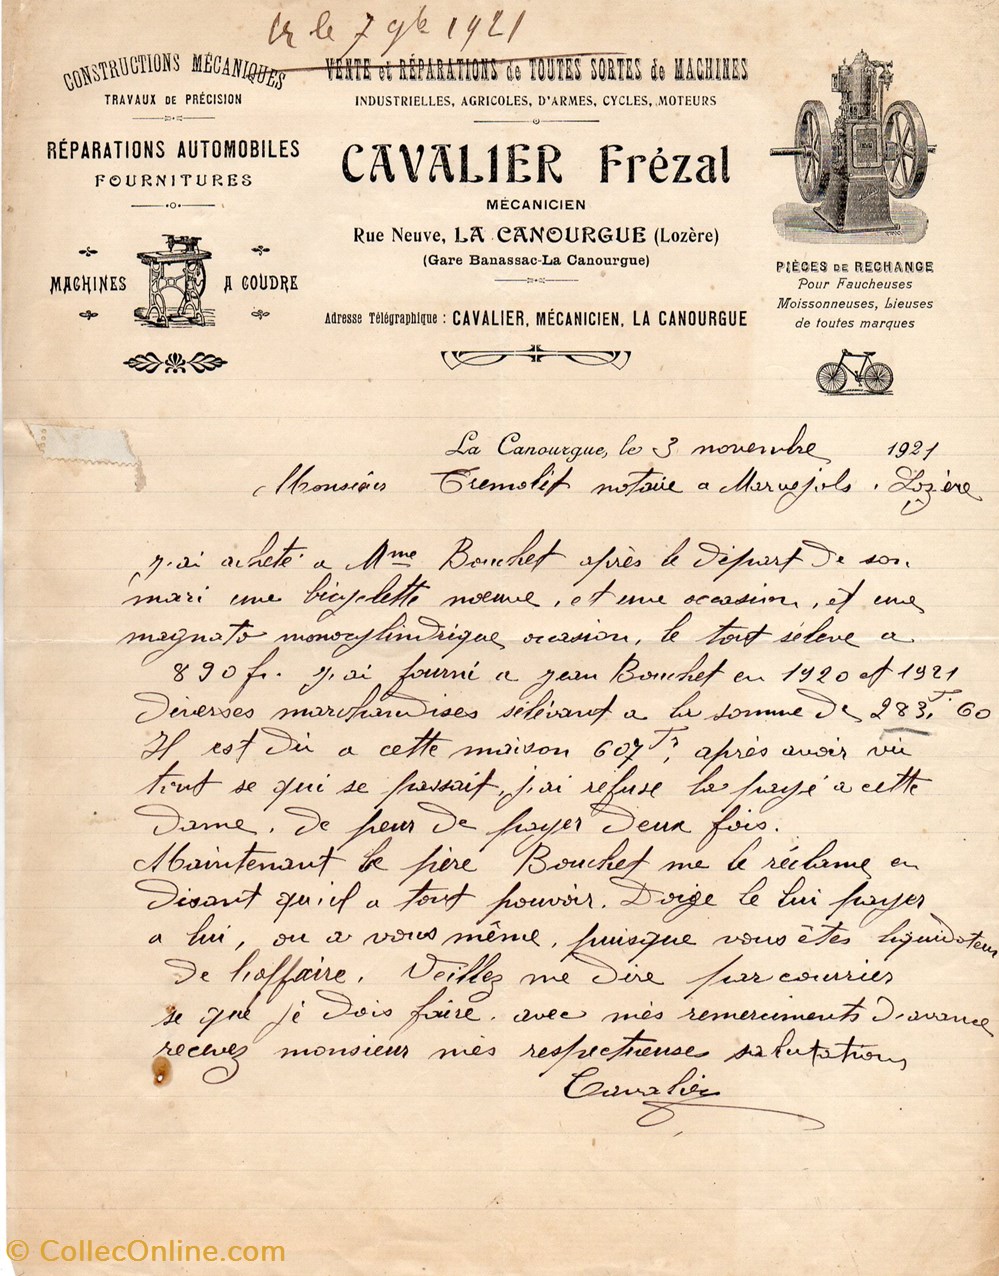 le 7 9bre 1921
CONSTRUCTIONS MÉCANIQUES
TRAVAUX DE PRÉCISION
RÉPARATIONS AUTOMOBILES
FOURNITURES
MACHINES A COUDRE
VENTE et RÉPARATIONS de TOUTES SORTES de MACHINES
INDUSTRIELLES, AGRICOLES, D'ARMES, CYCLES, MOTEURS
CAVALIER Frézal
MÉCANICIEN
Rue Neuve, LA CANOURGUE (Lozère)
(Gare Banassac-La Canourgue)
Adresse Télégraphique : CAVALIER, MÉCANICIEN, LA CANOURGUE
PIÈCES DE RECHANGE
Pour Faucheuses
Moissonneuses, Lieuses
de toutes marques
La Canourgue, le 3 novembre 1921
Monsieur Tremolet notaire a Marvejols. Lozère
J'ai acheté a Mme Bouchet après le départ de son
mari une bicyclette noeuve, et une occasion, et une
magnato monocylindrique occasion, le tout séleve a
890 fr. J'ai fourni a Jean Bouchet en 1920 et 1921
diverses marchandises sélévant a la somme de 283, 60
Il est dû a cette maison 607 fr, après avoir vu
tout se qui se passait, j'ai réfuse la payé a cette
dame, de peur de payer deux fois.
Maintenant le père Bouchet me le réclame en
disant qu'il a tout pouvoir. Doige le lui payer
a lui, ou a vous même, puisque vous êtes liquidateur
de l'affaire. Veillez me dire par courrier
se que je dois faire, avec més remerciments d'avance
recevez monsieur més respectueuses salutations
Cavalier
© CollecOnline.com